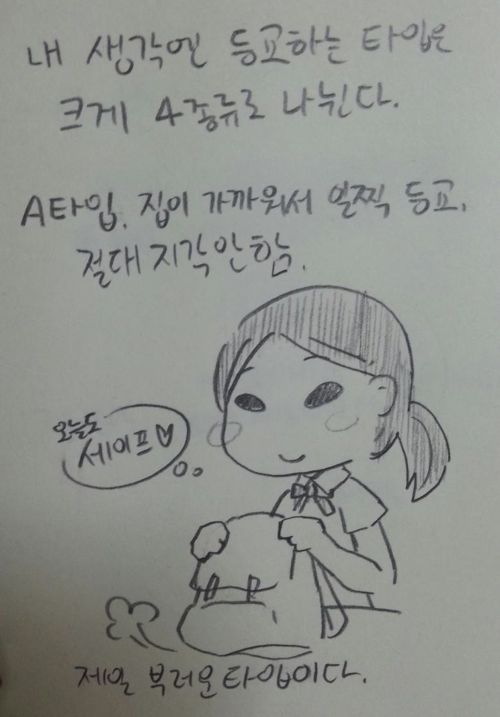 내 생각엔 등교하는 타입은
크게 4종류로 나뉜다.
A타입. 집이 가까워서 일찍 등교.
절대 지각안함.
오늘도
세이프♡
제일 부러운타입이다.